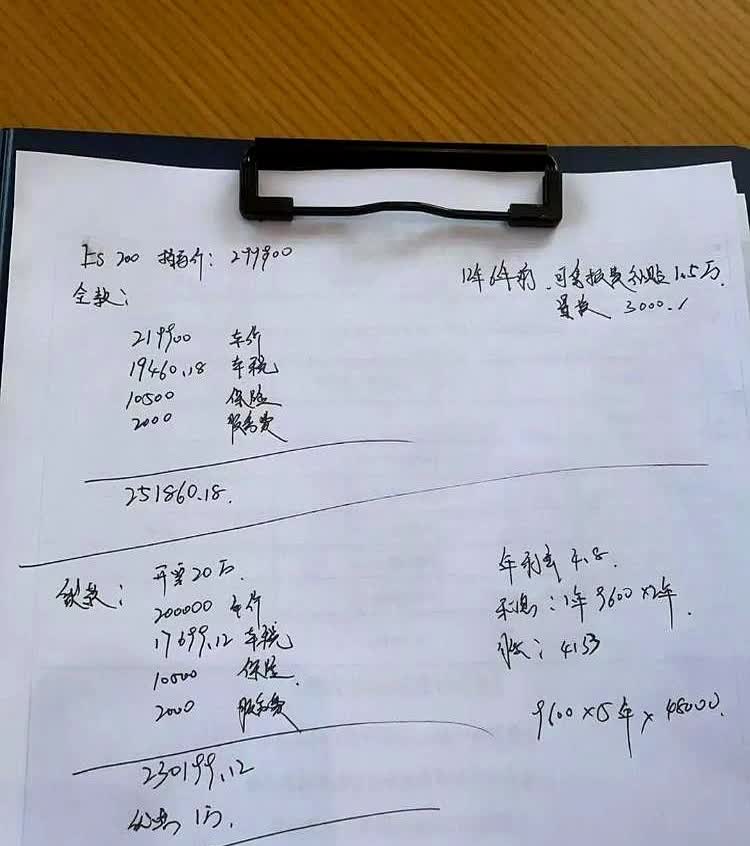 ES 200 指导价：299900
12年6年前、可享报废补贴1.5万.
置换 3000.
全款：
219900 车价
19460.18 车税
10500 保险
2000 服务费
251860.18.
贷款： 开票20万.
200000 车价
17699.12 车税
10500 保险
2000 服务费
230199.12
1万.
年利率 4.8.
利息：1年 9600×2年.
4153
9600×5年 × 48000.